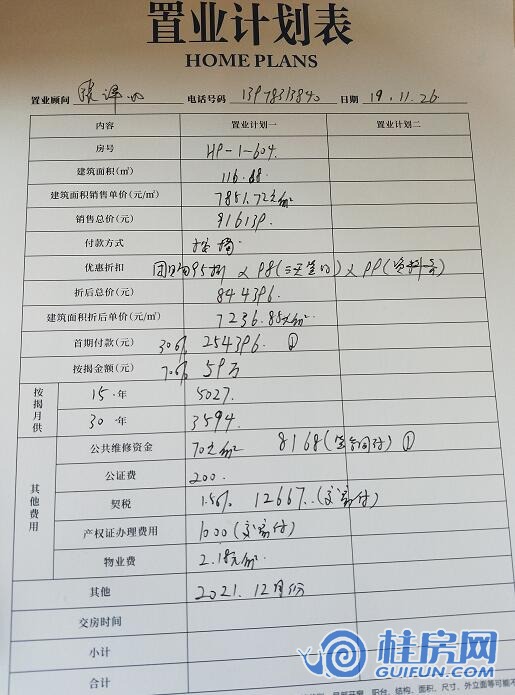 置业计划表
HOME PLANS
置业顾问 电话号码 13978313840 日期 19.11.26
内容 置业计划一 置业计划二
房号 HP-1-604.
建筑面积(㎡) 116.68
建筑面积销售单价(元/㎡) 7851.72元/㎡
销售总价(元) 916139.
付款方式 按揭
优惠折扣 团购95折 × 98(三天签约) × 99(资料齐)
折后总价(元) 844396.
建筑面积折后单价(元/㎡) 7236.85元/㎡
首期付款(元) 30% 254396. ①
按揭金额(元) 70% 59万
按揭月供
15 年 5027.
30 年 3594.
其他费用
公共维修资金 70元/㎡ 8168(签合同付) ①
公证费 200.
契税 1.5% 12667..(交房付)
产权证办理费用 1000(交房付)
物业费 2.18元/㎡.
其他 2021.12月份
交房时间
小计
合计
桂房网
GUIFUN.COM
阳台、结构、面积、尺寸、外立面等可能不